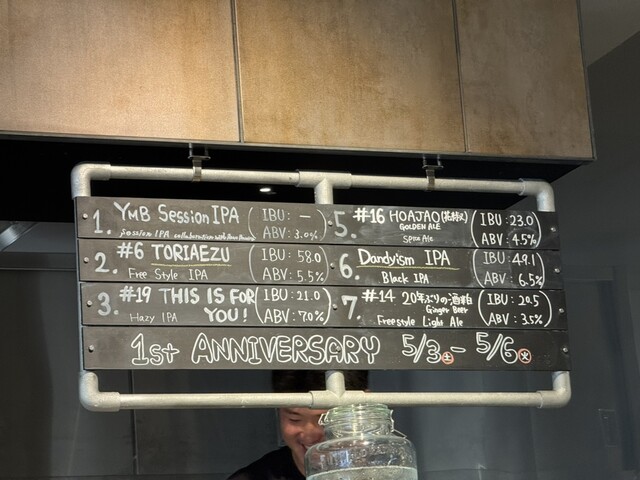 1. YMB Session IPA (IBU: — ABV: 3.0%)
Session IPA collaboration with
2. #6 TORIAEZU (IBU: 58.0 ABV: 5.5%)
Free Style IPA
3. #19 THIS IS FOR YOU! (IBU: 21.0 ABV: 7.0%)
Hazy IPA
5. #16 HOAJAO (IBU: 23.0 ABV: 4.5%)
GOLDEN ALE
Ale
6. Dandyism IPA (IBU: 49.1 ABV: 6.5%)
Black IPA
7. #14 20年ぶりの酒粕 (IBU: 20.5 ABV: 3.5%)
Ginger Beer
Freestyle Light Ale
1st ANNIVERSARY 5/3土 - 5/6火